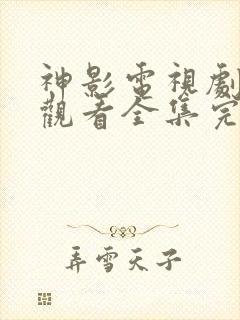 神影電視劇
觀看全集完
弄雪天子